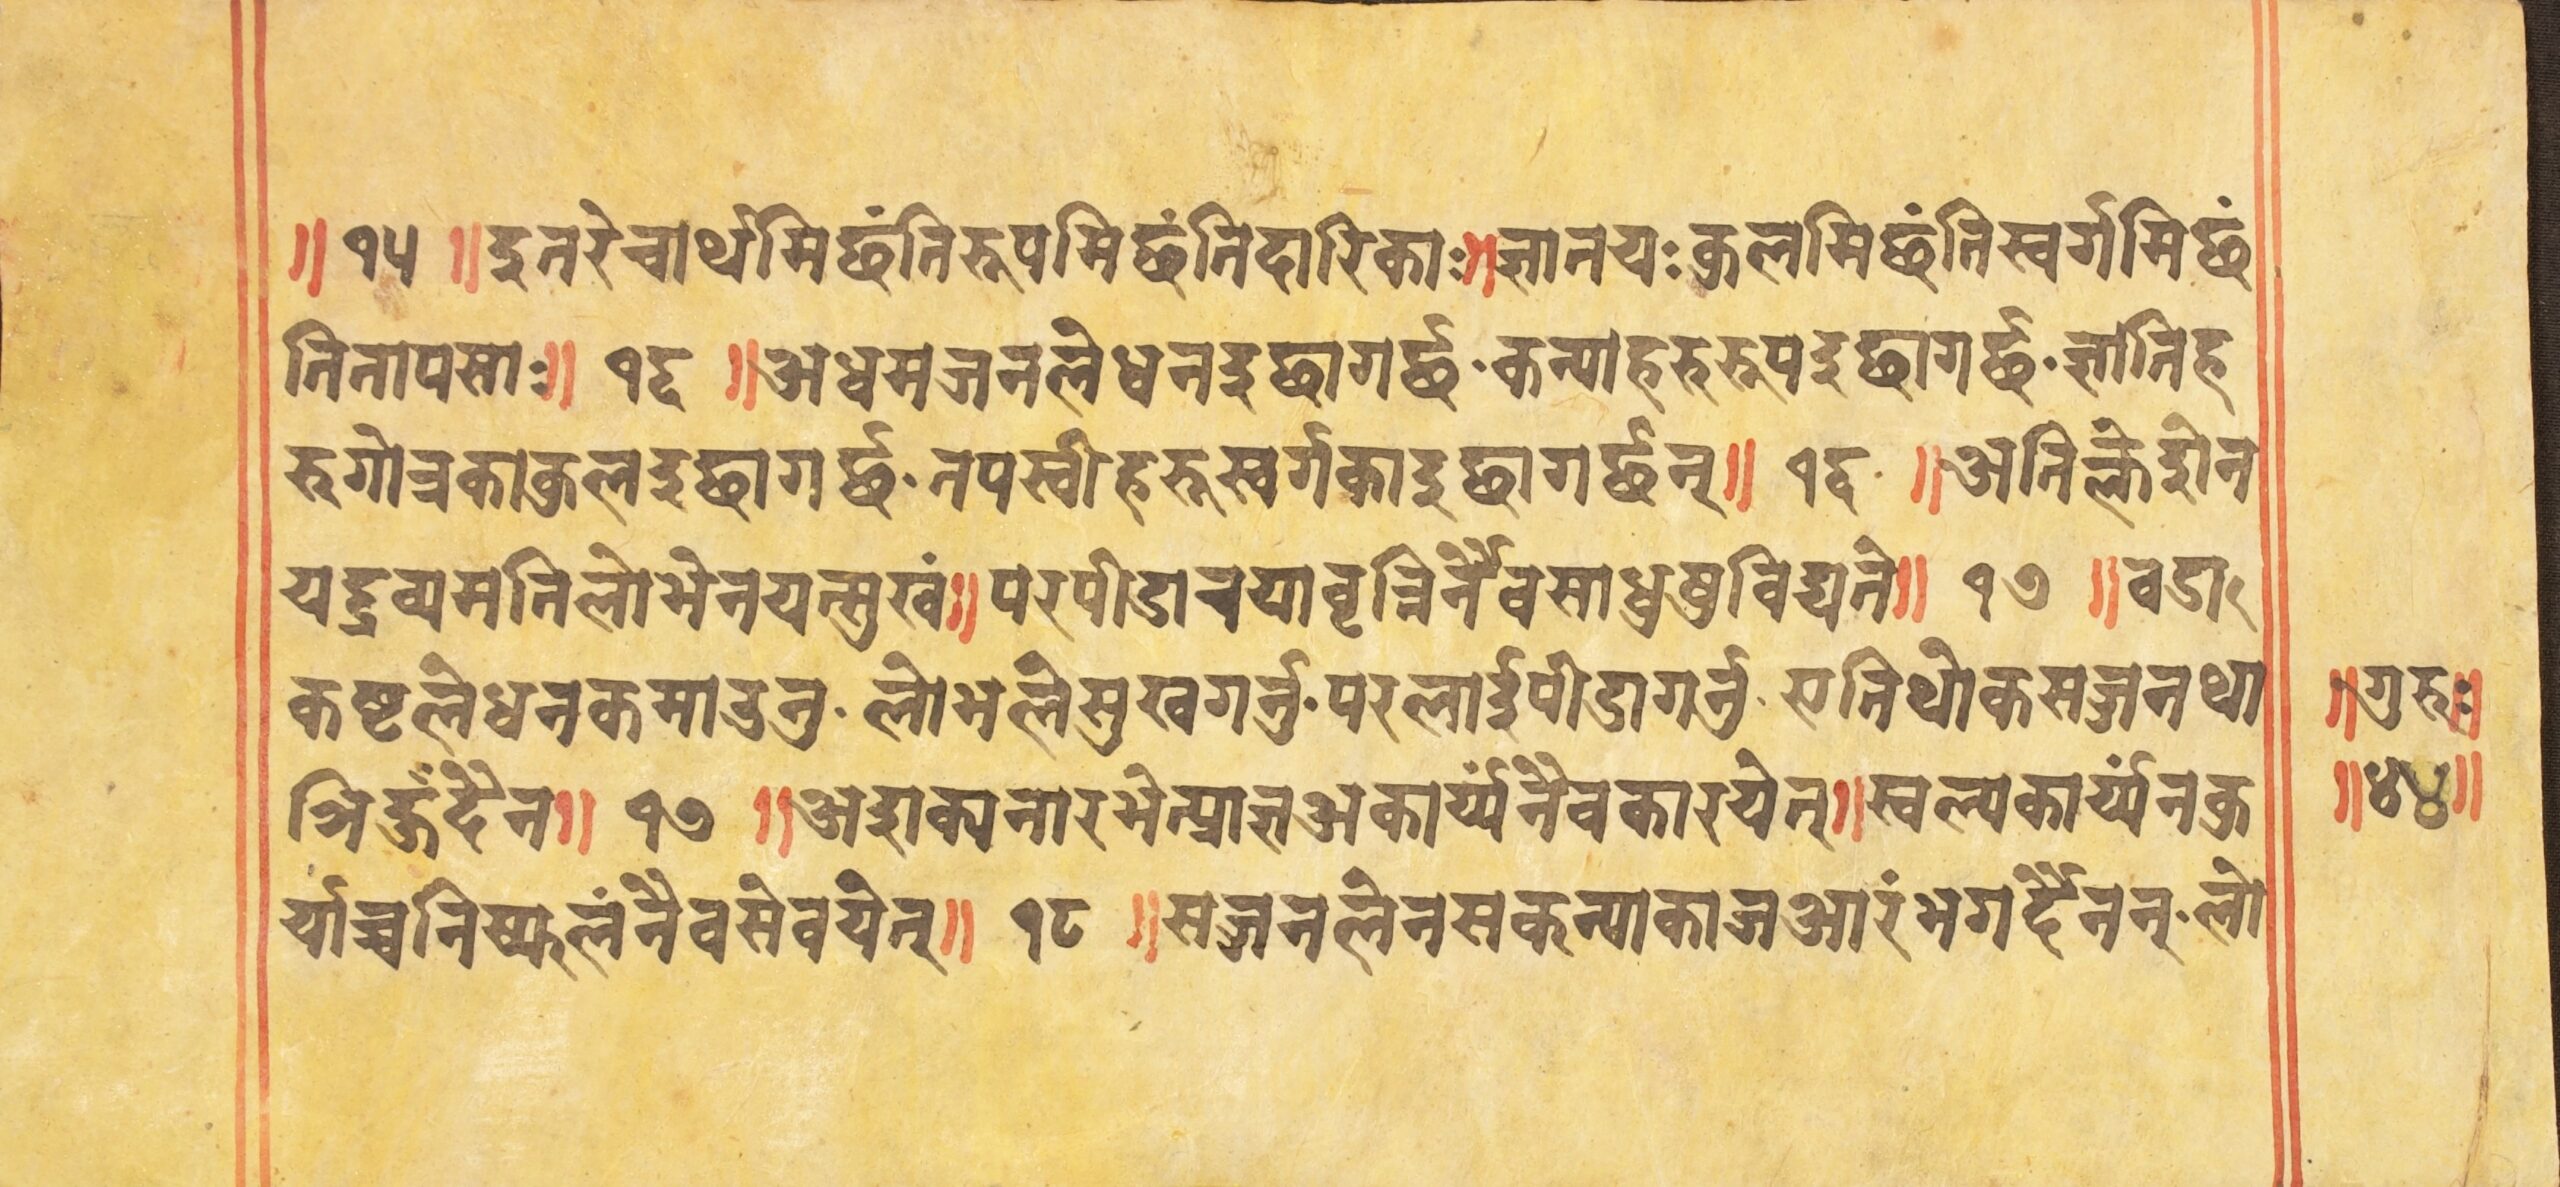 ॥ १५ ॥ इतरेचार्थमिछंतिरूपमिछंतिदारिकाः॥ज्ञातयःकुलमिछंतिस्वर्गमिछं
तितापसाः॥ १६ ॥अधमजनलेधनइछागर्छ·कन्याहरुरूपइछागर्छ·ज्ञातिह
रुगोत्रकाकुलइछागर्छ·तपस्वीहरूस्वर्गकाइछागर्छन्॥ १६ ॥अतिक्लेशेन
यद्द्रव्यमतिलोभेनयत्सुखं॥परपीडाचयावृत्तिर्नैवसाधुषुविद्यते॥ १७ ॥वडा
कष्टलेधनकमाउनु·लोभलेसुखगर्नु·परलाईपीडागर्नु·एतिथोकसज्जनथा
ञिहुँदैन॥ १७ ॥अशक्यनारभेत्प्राज्ञअकार्य्यंनैवकारयेत्॥स्वल्पकार्य्यंनकु
र्याच्चनिष्फलंनैवसेवयेत्॥ १८ ॥सज्जनलेनसकन्याकाजआरंभगर्दैनन्·लो
॥गुरुः॥
॥४४॥